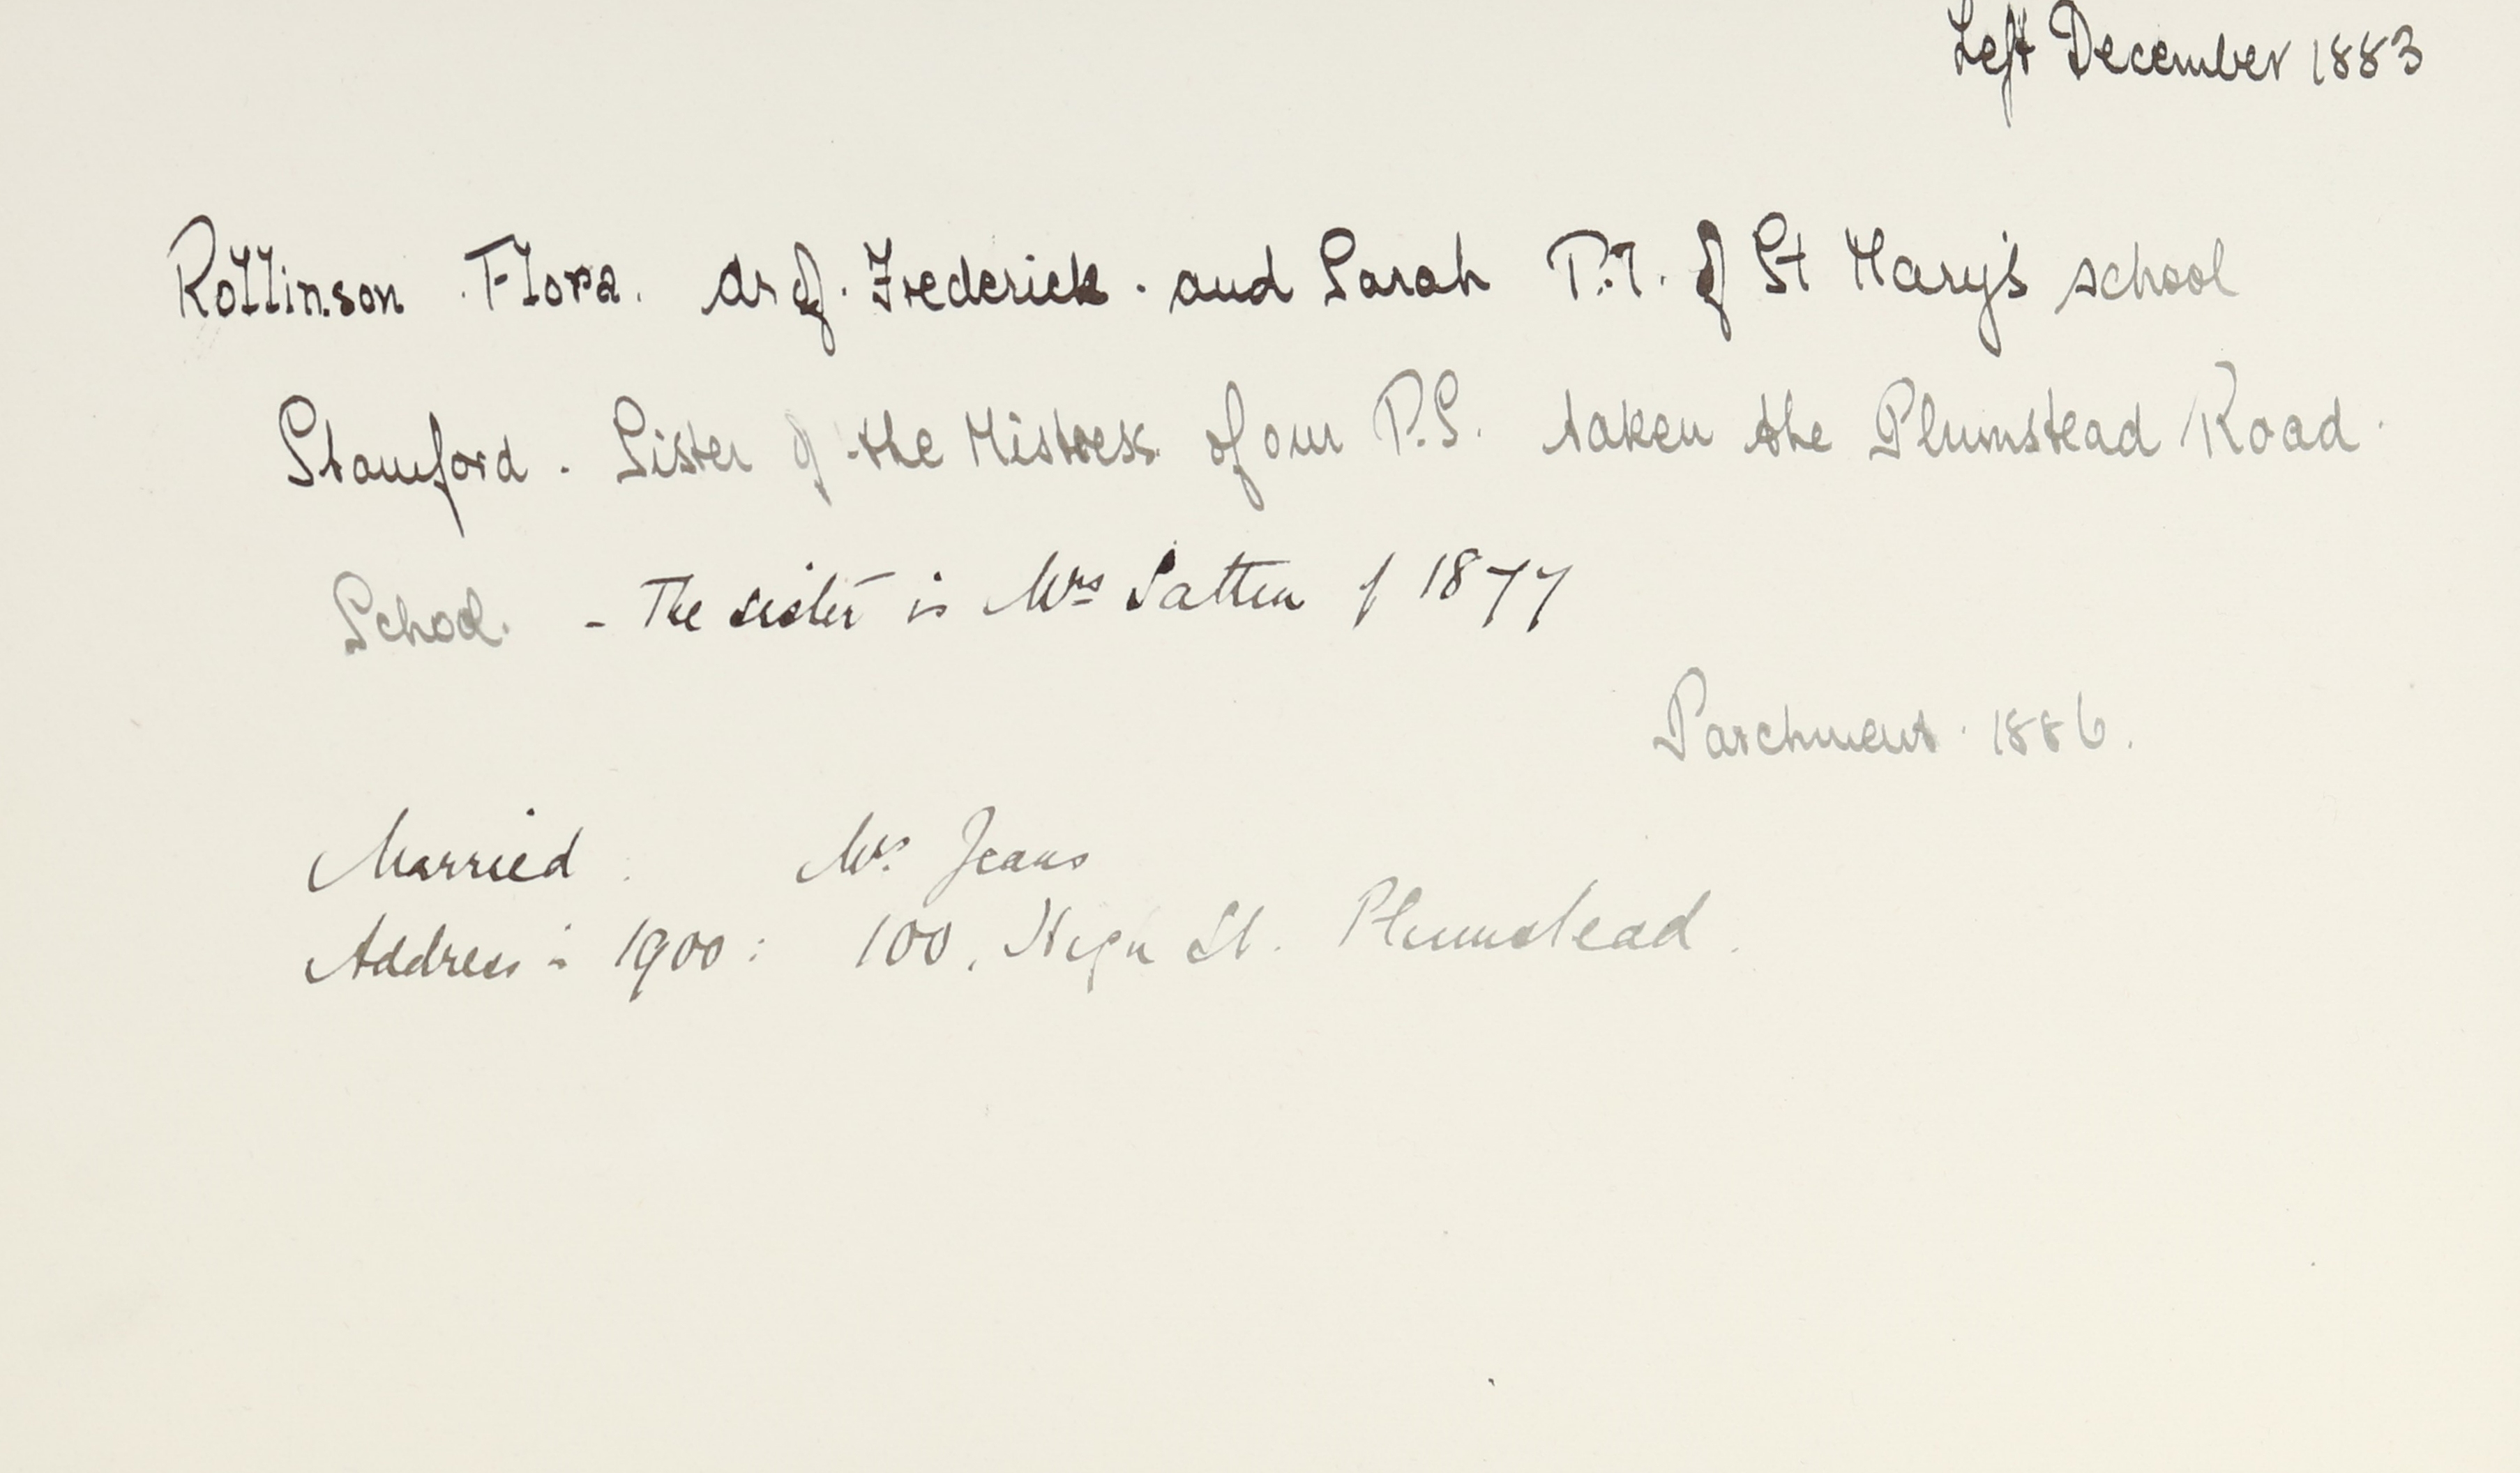 Left December 1883
Rollinson . Flora . dr of . Frederick . and Sarah P.T. of St Mary's school
Stamford . Sister of the Mistress of our P.S. taken the Plumstead Road .
School . - The sister is Mrs Patten of 1877
Parchment . 1886 .
Married : Mr. Jeans
Address :- 1900 : 100 , High St. Plumstead .